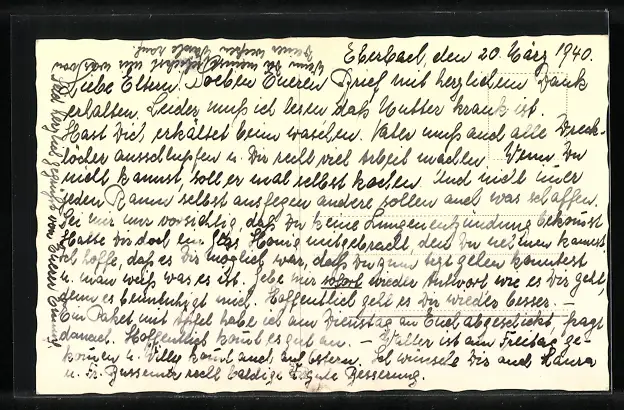 Eberbach, den 20. März 1940.
Liebe Eltern! Soeben Eueren Brief mit herzlichem Dank
erhalten. Leider muß ich lesen daß Mutter krank ist.
Hast Dich erkältet beim waschen. Vater muß auch alle Dreck-
löcher ausschlupfen u. Dir recht viel Arbeit machen. Wenn Du
nicht kannst, soll er mal selbst kochen. Und nicht immer
jeden Raum selbst ausfegen andere sollen auch was schaffen.
Sei mir nur vorsichtig, daß Du keine Lungenentzündung bekommst
Hatte Dir doch ein Glas Honig mitgebracht, den Du nehmen kannst.
Ich hoffe, daß es Dir möglich war, daß Du zum Arzt gehen konntest
u. man weiß was es ist. Gebe mir sofort wieder Antwort wie es Dir geht,
denn es beunruhigt mich. Hoffentlich geht es Dir wieder besser. –
Ein Paket mit Äpfel habe ich am Dienstag an Euch abgeschickt, fragt
danach. Hoffentlich kommt es gut an. – Walter ist am Freitag ge-
kommen u. Willy kommt auch auf Ostern. Ich wünsche Dir auch
u. Fr. recht baldige gute Besserung.